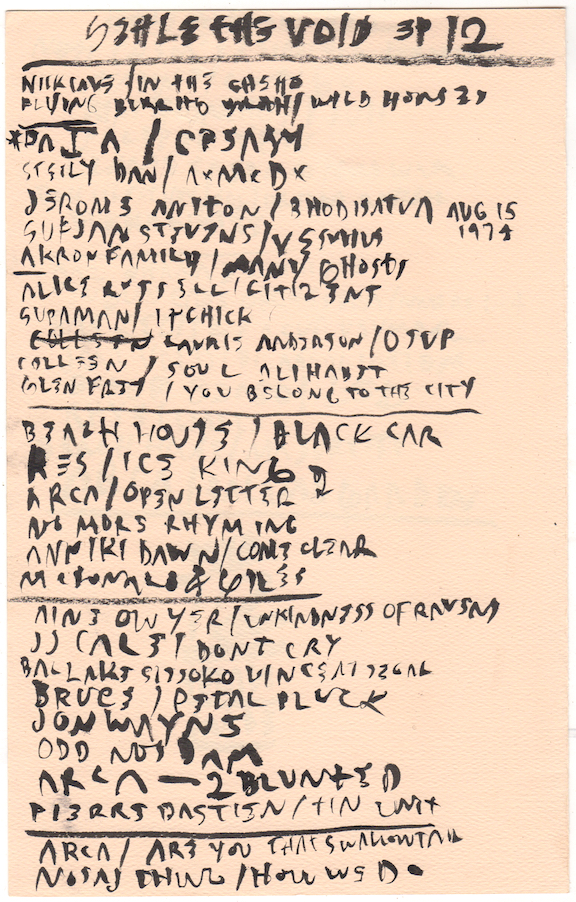 THE VOID EP 12
/ IN THE
FLYING / WILD HORSES
*
STEELY DAN /
JEROME / BHODISATVA AUG 15
1974
SUFJAN STEVENS / VESUVIUS
AKRON FAMILY / MANY GHOSTS
ALICE RUSSELL / CITIZENS
SUPAMAN / ITCHICK
LAURIE ANDERSON / O SUP
COLLEEN / SOUL ALPHABET
GLEN FREY / YOU BELONG TO THE CITY
BEACH HOUSE / BLACK CAR
RES / ICE KING 2
ARCA / OPEN LETTER
NO MORE RHYMING
DAWN / COME CLEAR
MCDONALD & GILES
/ UNKINDNESS OF RAVENS
JJ CALE / DONT CRY
BALLAKE SISSOKO VINCENT SEGAL
BRUCE / PETAL PLUCK
JONWAYNE
ODD NOSDAM
ARCA — 2 BLUNTED
PIERRE BASTIEN / TIN
ARCA / ARE YOU THAT SWALLOWTAIL
NOSAJ THING / HOW WE DO